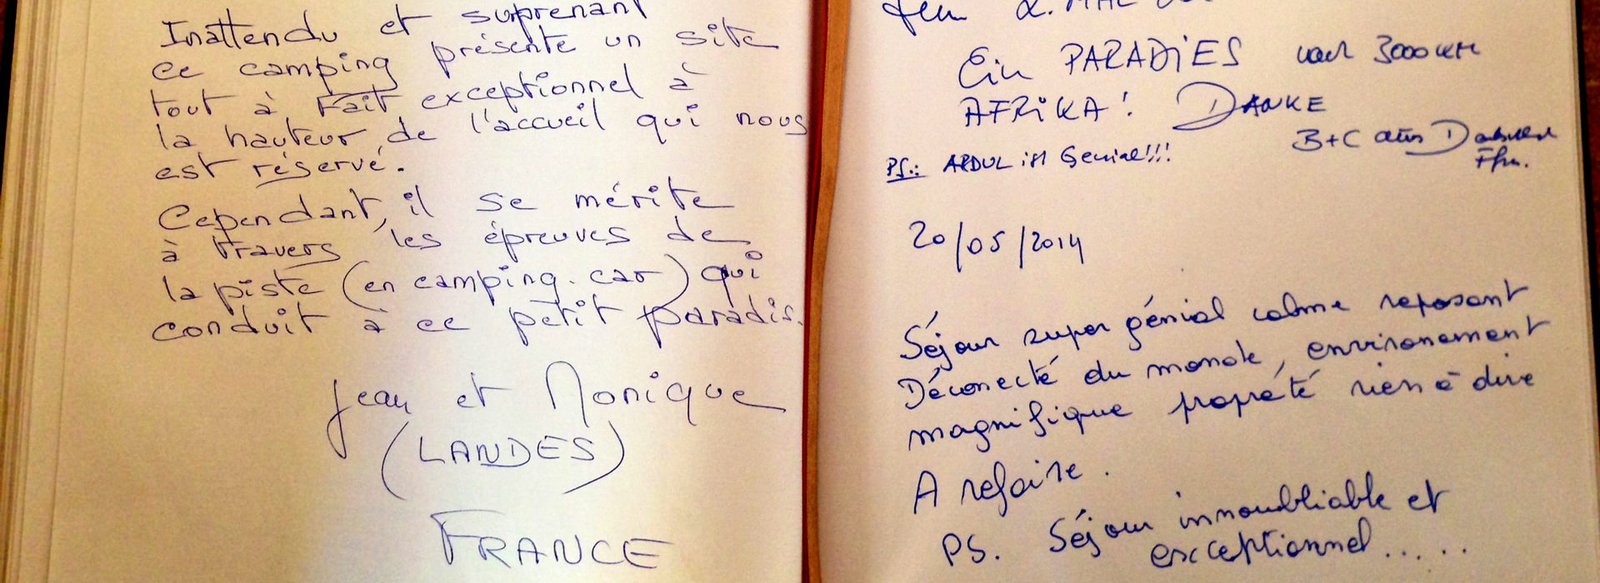 Inattendu et surprenant
ce camping présente un site
tout à fait exceptionnel à
la hauteur de l'accueil qui nous
est réservé.
Cependant, il se mérite
à travers les épreuves de
la piste (en camping-car) qui
conduit à ce petit paradis.
Jean et Monique
(LANDES)
FRANCE
Ein PARADIES nach 3000 KM
AFRIKA! DANKE
B+C aus
PS.: ABDUL iM Genial!!!
20/05/2014
Séjour super génial calme reposant
Déconecté du monde, environement
magnifique propreté rien à dire
A refaire.
PS. Séjour innoubliable et
exceptionnel.....